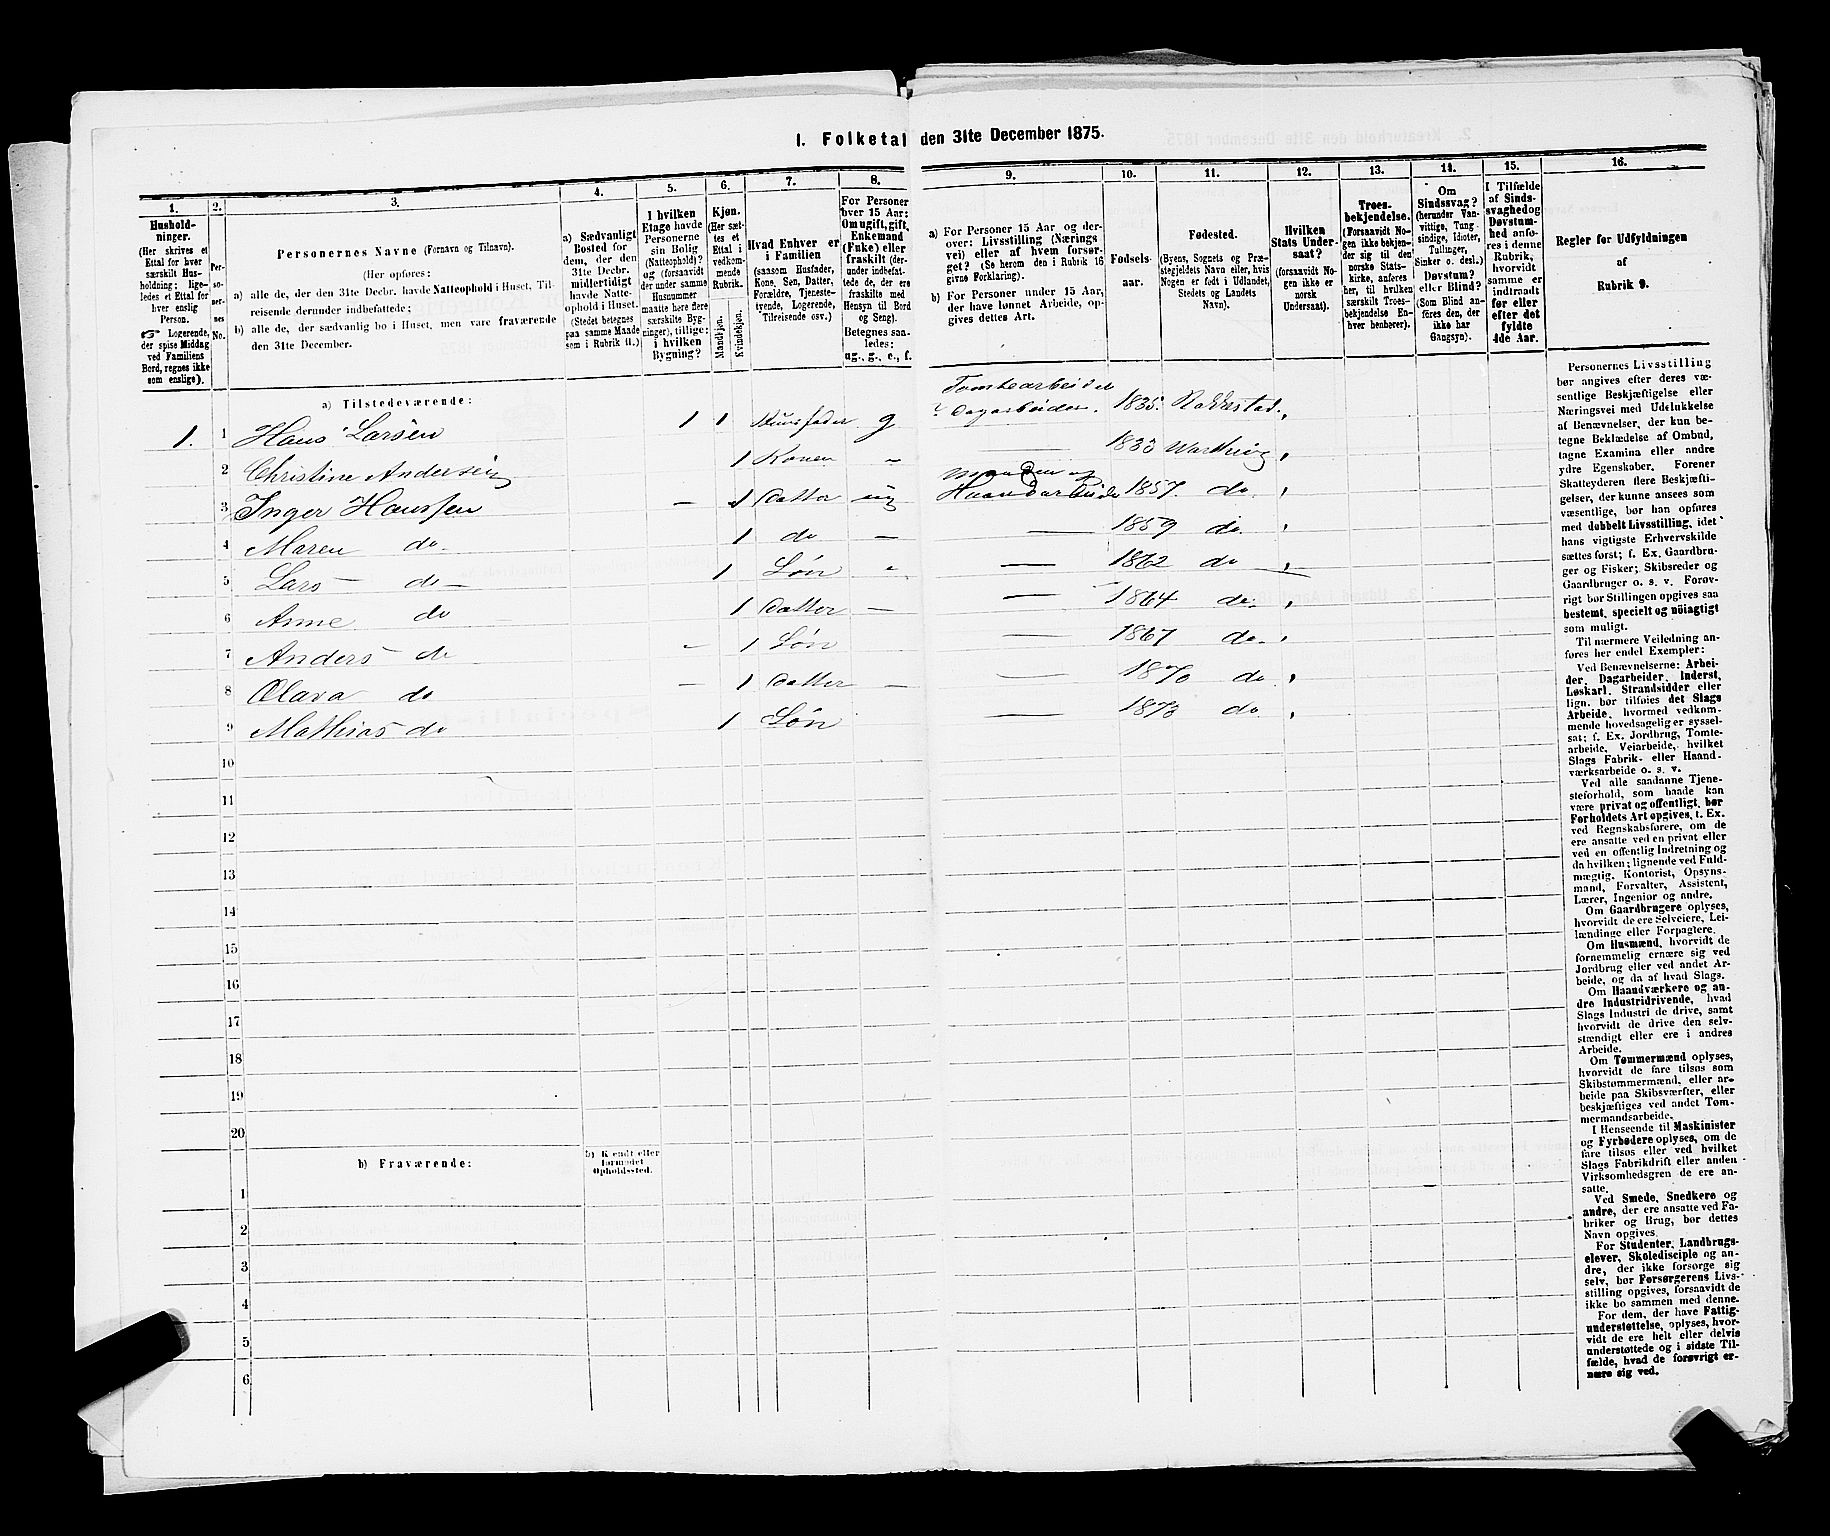 I. Folketal den 31te December 1875.
1.
Hushold-
ninger.
(Her skrives et
Ettal for hver
særskilt Hus-
holdning; lige-
ledes et Ettal for
hver enslig
Person.
☞ Logerende,
der spise Middag
ved Familiens
Bord, regnes ikke
som enslige).
2.
Per-
so-
ner-
nes
No.
3.
Personernes Navne (Fornavn og Tilnavn).
(Her opføres:
a) alle de, der den 31te Decbr. havde Natteophold i Huset, Til-
reisende derunder indbefattede;
b) alle de, der sædvanlig bo i Huset, men vare fraværende
den 31te December.
4.
a) Sædvanligt
Bosted for
dem, der den
31te Decbr.
midlertidigt
havde Natte-
ophold i Huset.
(Stedet betegnes
paa samme Maade
som i Rubrik 11.)
5.
I hvilken
Etage havde
Personerne
sin Bolig
(Natteophold)?
og (forsaavidt
der under samme
Husnummer
maatte høre flere
særskilte Byg-
ninger), tillige:
i hvilken
Bygning?
6.
Kjøn.
(Her sæt-
tes et
Ettal i
vedkom-
mende
Rubrik.
Mandkjøn.
Kvindekjøn.
7.
Hvad Enhver er
i Familien
(saasom Husfader,
Kone, Søn, Datter,
Forældre, Tjeneste-
tyende, Logerende,
Tilreisende osv.)
8.
For Personer
over 15 Aar:
Om ugift, gift,
Enkemand
(Enke) eller
fraskilt (der-
under indbefat-
tede de, der ere
fraskilte med
Hensyn til Bord
og Seng).
Betegnes saa-
ledes:
ug., g., e., f.
9.
a) For Personer 15 Aar og der-
over: Livsstilling (Nærings
vei) eller af hvem forsør-
get? (Se herom den i Rubrik 16
givne Forklaring).
b) For Personer under 15 Aar,
der have lønnet Arbeide, op-
gives dettes Art.
10.
Fødsels-
aar.
11.
Fødested.
(Byens, Sognets og Præ-
stegjeldets Navn eller, hvis
Nogen er født i Udlandet,
Stedets og Landets
Navn).
12.
Hvilken
Stats Under-
saat?
(forsaavidt No-
gen ikke er
norsk
Undersaat).
13.
Troes-
bekjendelse.
(Forsaavidt No-
gen ikke bekjen-
der sig til den
norske Stats-
kirke, anføres
her, til hvilken
særskilt Troes-
bekjendelse En-
hver henhører).
14.
Om
Sindssvag?
(herunder Van-
vittige, Tung-
sindige, Idioter,
Tullinger,
Sinker o. desl.)
Døvstum?
eller Blind?
(Som Blind an-
føres den, der
ikke har
Gangsyn).
15.
I Tilfælde
af Sinds-
svaghed og
Døvstum-
hed anfø-
res i denne
Rubrik,
hvorvidt
samme er
indtraadt
før eller
efter det
fyldte
4de Aar.
16.
Regler for Udfyldningen
af
Rubrik 9.
a) Tilstedeværende:
Tomtearbeider
1. 1 Hans Larsen 1 1 Husfader g Dagarbeider. 1835. Rakkestad
2 Christine Andersen 1 Konen — — 1833
3 Inger Hansen — 1 Datter ug Haandarbeide 1857. do.
4 Maren do. 1 do — — 1859 do.
5 Lars do — 1 Søn — 1862 do
6 Anne do 1 Datter — — 1864 do.
7 Anders do — 1 Søn — 1867 do.
8 Olava do — 1 Datter — — 1870 do.
9 Mathias do 1 Søn — 1873 do.
10
11
12
13
14
15
16
17
18
19
20
b) Fraværende:
b) Kjendt eller
formodet
Opholdssted.
1
2
3
4
5
6
Personernes Livsstilling
bør angives efter deres væ-
sentlige Beskjæftigelse eller
Næringsvei med Udelukkelse
af Benævnelser, der kun be-
tegne Beklædelse af Ombud,
tagne Examina eller andre
ydre Egenskaber. Forener
Skatteyderen flere Beskjæfti-
gelser, der kunne ansees som
væsentlige, bør han opføres
med dobbelt Livsstilling, idet
hans vigtigste Erhvervskilde
sættes først; f. Ex. Gaardbru-
ger og Fisker; Skibsreder og
Gaardbruger o. s. v. Forøv-
rigt bør Stillingen opgives saa
bestemt, specielt og nøiagtigt
som muligt.
Til nærmere Veiledning an-
føres her endel Exempler:
Ved Benævnelserne: Arbei-
der, Dagarbeider, Inderst,
Løskarl, Strandsidder eller
lign. bør tilføies det Slags
Arbeide, hvormed vedkom-
mende hovedsagelig er syssel-
sat; f. Ex. Jordbrug, Tomte-
arbeide, Veiarbeide, hvilket
Slags Fabrik- eller Haand-
værksarbeide o. s. v.
Ved alle saadanne Tjene-
steforhold, som baade kan
være privat og offentligt, bør
Forholdets Art opgives, t. Ex.
ved Regnskabsførere, om de
ere ansatte ved en privat eller
ved en offentlig Indretning og
da hvilken; lignende ved Fuld-
mægtig, Kontorist, Opsyns-
mand, Forvalter, Assistent,
Lærer, Ingeniør og andre.
Om Gaardbrugere oplyses,
hvorvidt de ere Selveiere, Lei-
lændinge eller Forpagtere.
Om Husmænd, hvorvidt de
fornemmelig ernære sig ved
Jordbrug eller ved andet Ar-
beide, og da af hvad Slags.
Om Haandværkere og an-
dre Industridrivende, hvad
Slags Industri de drive, samt
hvorvidt de drive den selv-
stændigt eller ere i andres
Arbeide.
Om Tømmermænd oplyses,
hvorvidt de fare tilsøs som
Skibstømmermænd, eller ar-
beide paa Skibsværfter, eller
beskjæftiges ved andet Tøm-
mermandsarbeide.
I Henseende til Maskinister
og Fyrbødere oplyses, om de
fare tilsøs eller ved hvilket
Slags Fabrikdrift eller anden
Virksomhedsgren de ere an-
satte.
Ved Smede, Snedkere og
andre, der ere ansatte ved Fa-
briker og Brug, bør dettes
Navn opgives.
For Studenter, Landbrugs-
elever, Skoledisciple og an-
dre, der ikke forsørge sig
selv, bør Forsørgerens Livs-
stilling opgives, forsaavidt de
ikke bo sammen med denne.
For dem, der have Fattig-
understøttelse, oplyses, hvor-
vidt de ere helt eller delvis
understøttede og i sidste Til-
fælde, hvad de forøvrigt er-
nære sig ved.